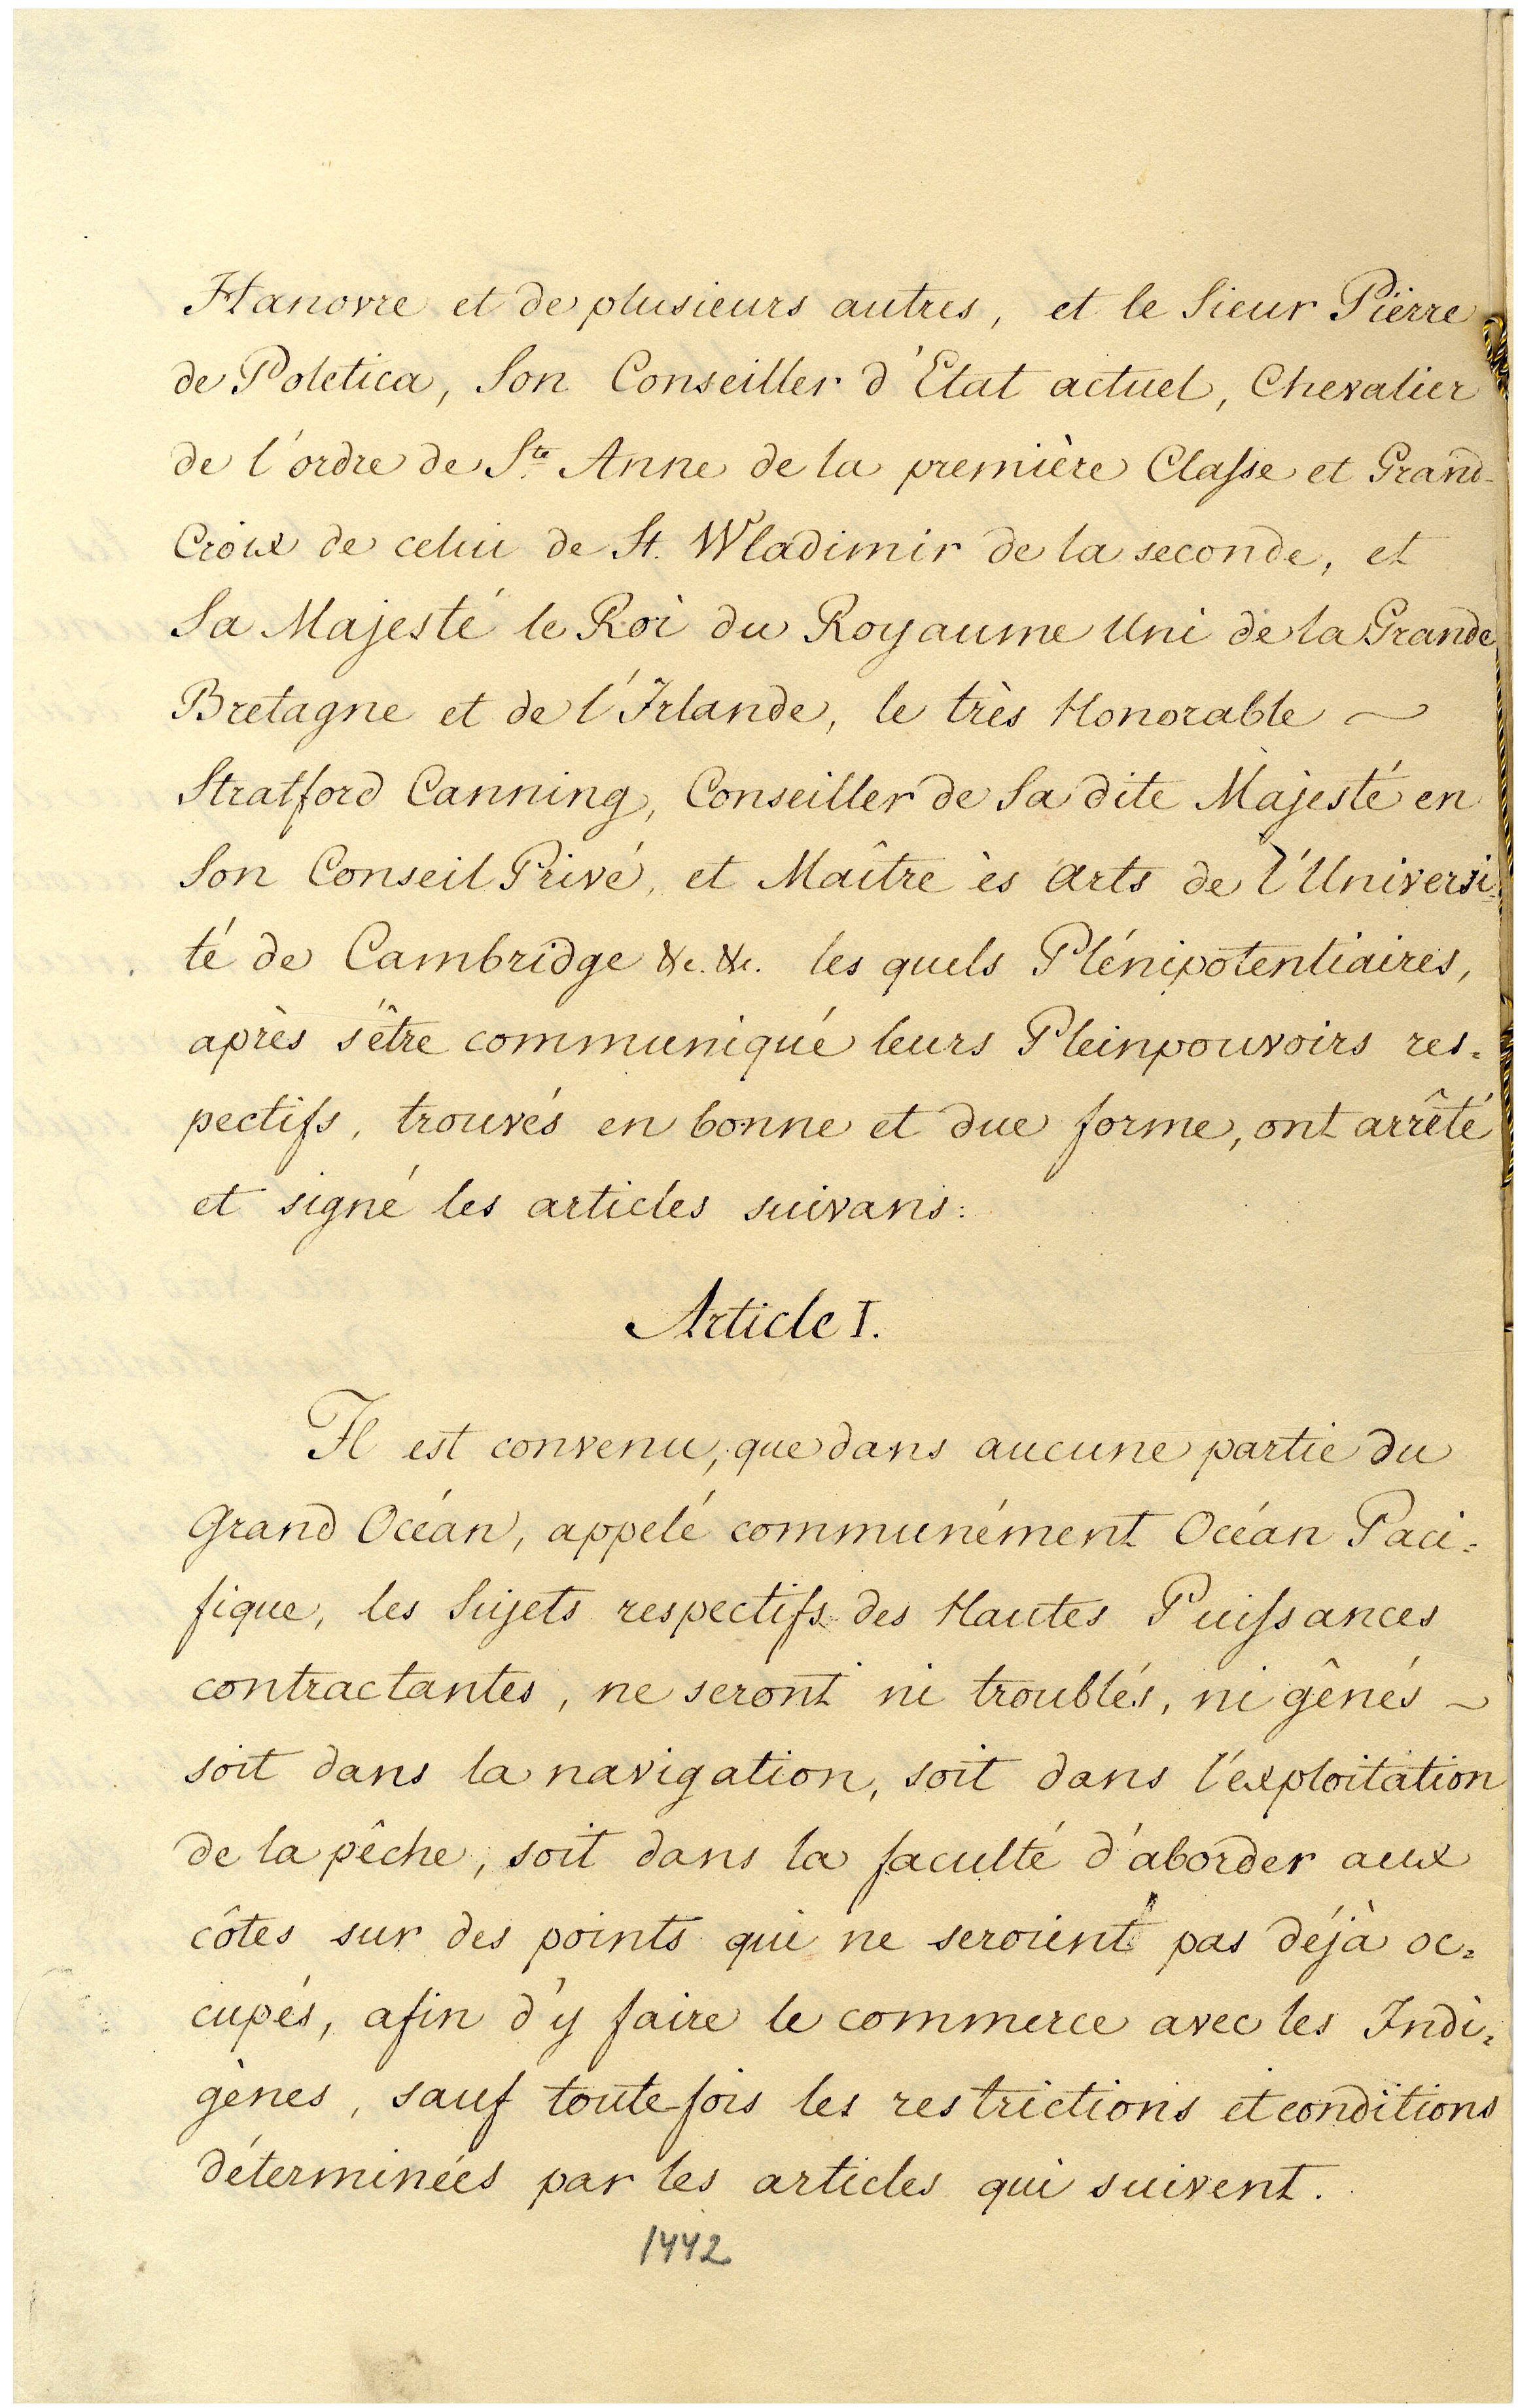 Hanovre et de plusieurs autres, et le Sieur Pierre
de Poletica, Son Conseiller d'Etat actuel, Chevalier
de l'ordre de Ste Anne de la première Claſse et Grand-
Croix de celui de St. Wladimir de la seconde, et
Sa Majesté le Roi du Royaume Uni de la Grande
Bretagne et de l'Irlande, le très Honorable ~
Stratford Canning, Conseiller de Sa dite Majesté en
Son Conseil Privé, et Maître ès Arts de l'Universi=
té de Cambridge &c. &c. les quels Plénipotentiaires,
après s'être communiqué leurs Pleinpouvoirs res=
pectifs, trouvés en bonne et due forme, ont arrêté
et signé les articles suivans:
Article I.
Il est convenu, que dans aucune partie du
Grand Océan, appelé communément Océan Paci=
fique, les Sujets respectifs des Hautes Puiſsances
contractantes, ne seront ni troublés, ni gênés ~
soit dans la navigation, soit dans l'exploitation
de la pêche, soit dans la faculté d'aborder aux
côtes sur des points qui ne seroient pas déjà oc=
cupés, afin d'y faire le commerce avec les Indi=
gènes, sauf toute fois les restrictions et conditions
déterminées par les articles qui suivent.
1442